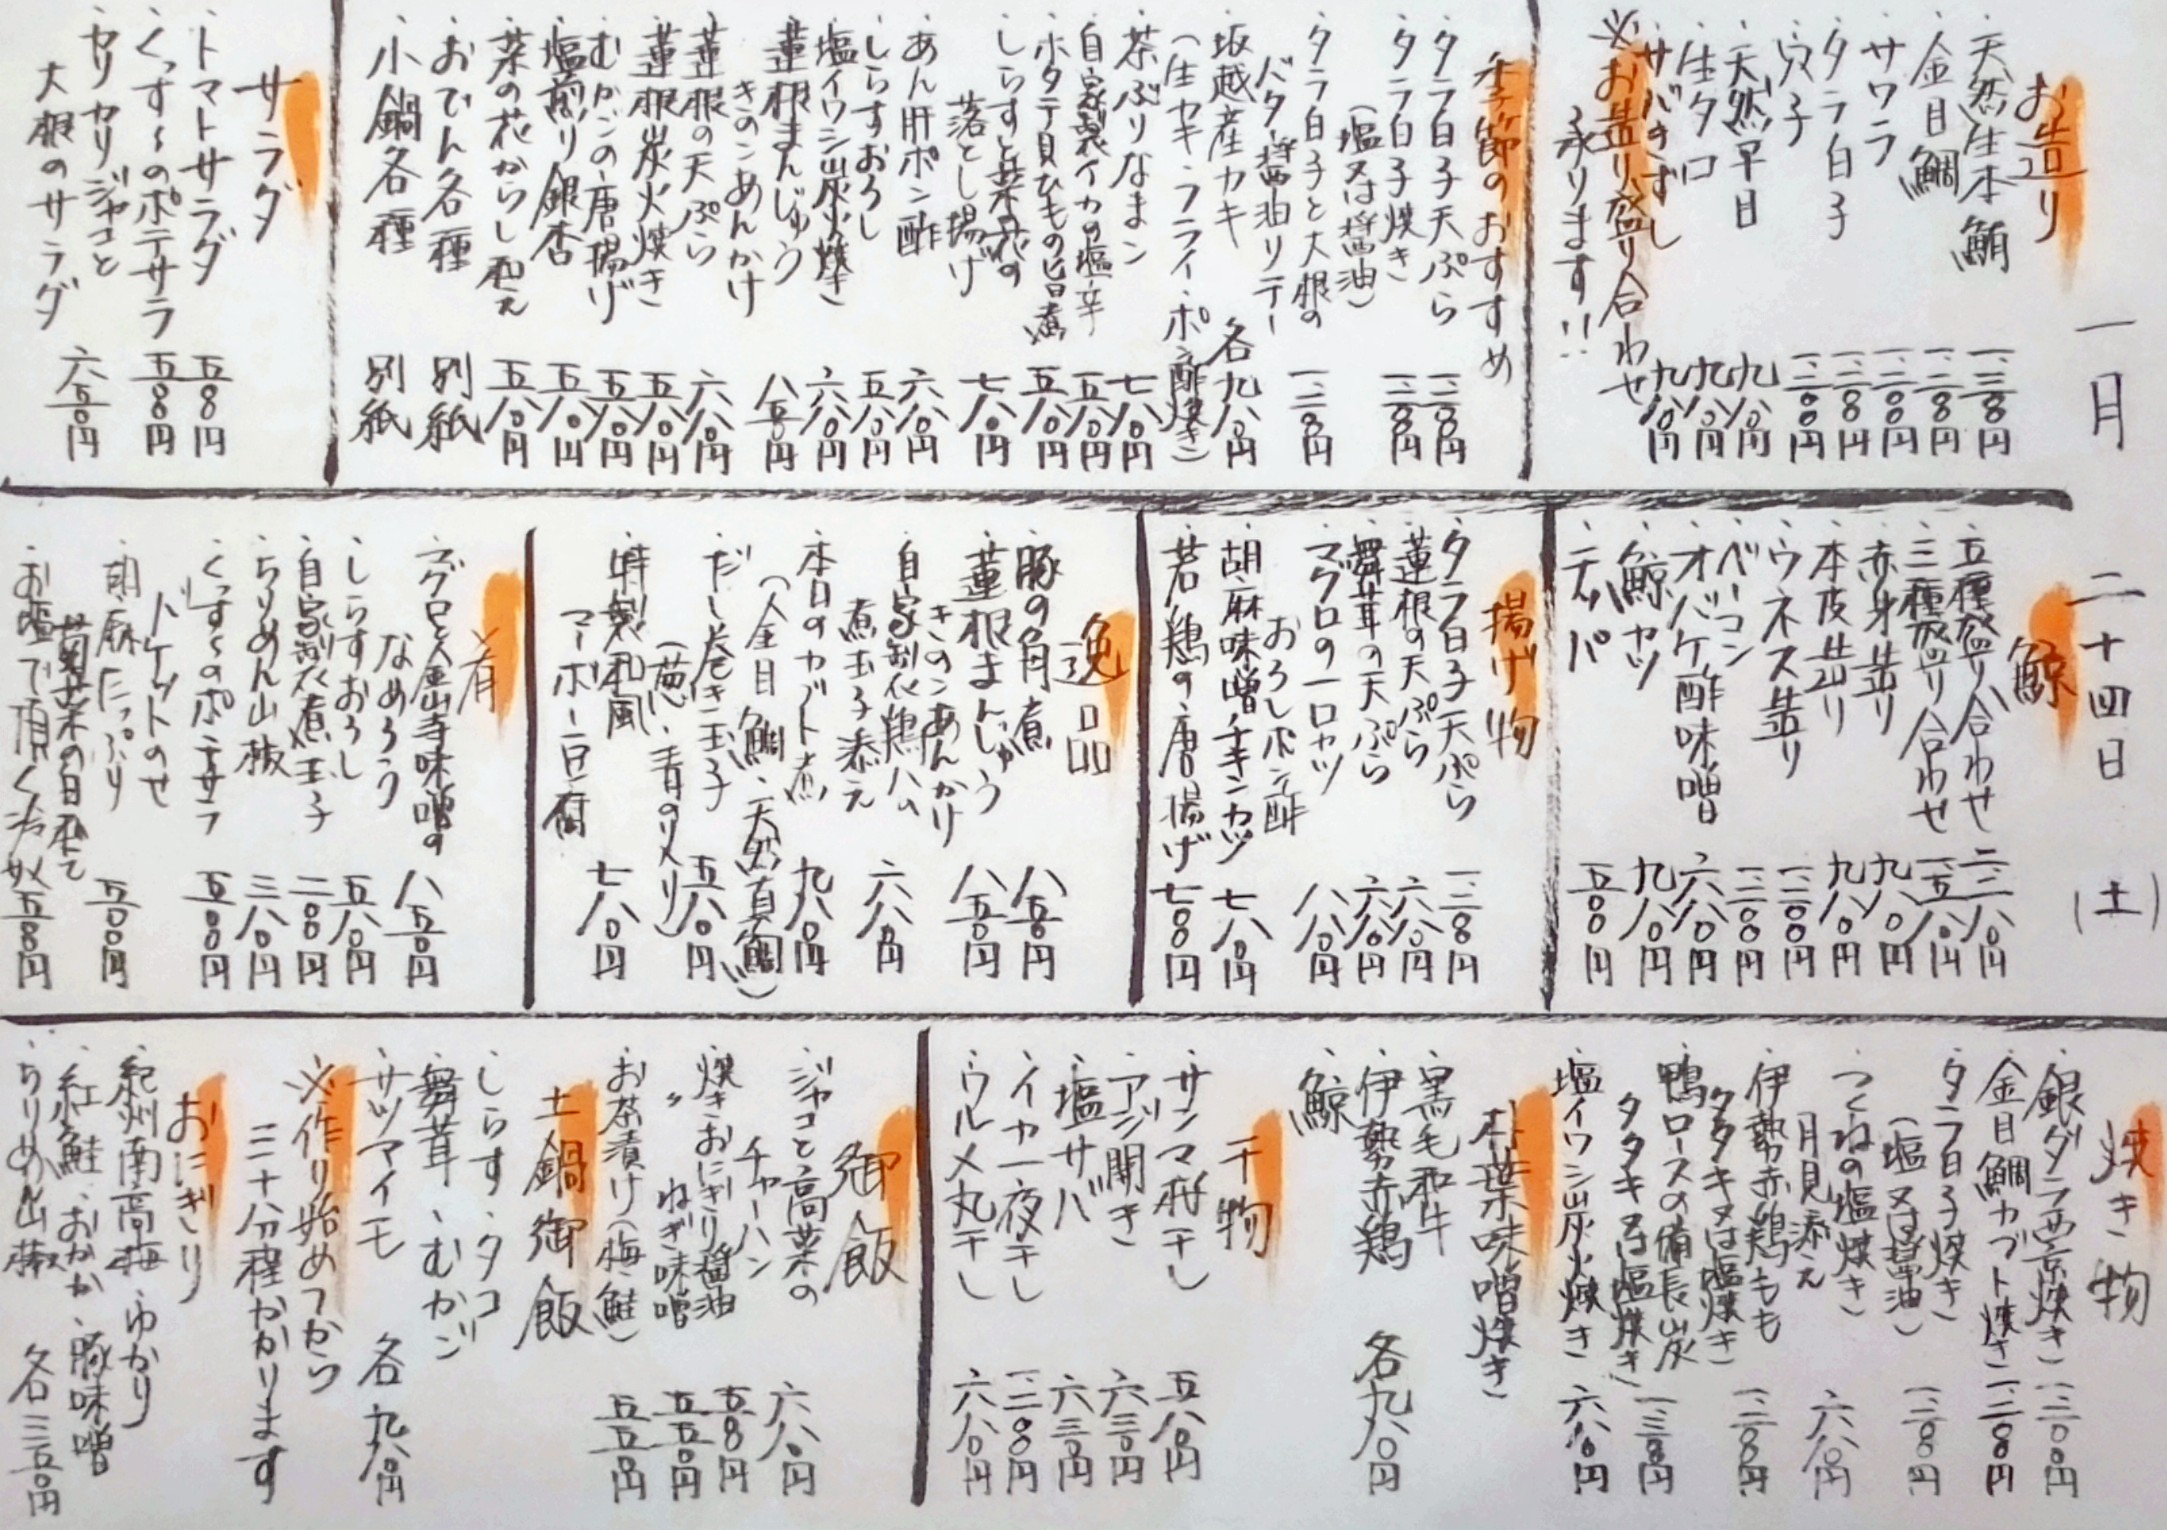 一月 二十四日 (土)
お造り
・天然生本鮪 一、三八〇円
・金目鯛 一、二八〇円
・サワラ 一、二〇〇円
・タラ白子 一、二八〇円
・穴子 一、二〇〇円
・天然平目 九八〇円
・生タコ 九八〇円
・サバきずし 九八〇円
※お造り盛り合わせ
承ります!!
季節のおすすめ
・タラ白子天ぷら 一、二八〇円
・タラ白子焼き 一、二八〇円
(塩又は醤油)
・タラ白子と大根の
バター醤油ソテー 一、二八〇円
・坂越産カキ 各九八〇円
(生カキ・フライ・ポン酢焼き)
・茶ぶりなまこ 七八〇円
・自家製イカの塩辛 五八〇円
・ホタテ貝ひもの旨煮 五八〇円
・しらすと菜の花の
落とし揚げ 七八〇円
・あん肝ポン酢 六八〇円
・しらすおろし 五八〇円
・塩イワシ炭火焼き 六八〇円
・蓮根まんじゅう
きのこあんかけ 八五〇円
・蓮根の天ぷら 六八〇円
・蓮根炭火焼き 五八〇円
・むかごの唐揚げ 五八〇円
・塩煎り銀杏 五八〇円
・菜の花からし和え 五八〇円
・おでん各種 別紙
・小鍋各種 別紙
サラダ
・トマトサラダ 五八〇円
・くっすーのポテサラ 五〇〇円
・セリ カリジャコと
大根のサラダ 六五〇円
鯨
・五種盛り合わせ 二、二八〇円
・三種盛り合わせ 一、五八〇円
・赤身造り 九八〇円
・本皮造り 九八〇円
・ウネス造り 一、二〇〇円
・ベーコン 一、二〇〇円
・オバケ酢味噌 六八〇円
・鯨カツ 九八〇円
・テッパ 五〇〇円
揚げ物
・タラ白子天ぷら 一、二八〇円
・蓮根の天ぷら 六八〇円
・舞茸の天ぷら 六八〇円
・マグロの一口カツ
おろしポン酢 八八〇円
・胡麻味噌チキンカツ 七八〇円
・若鶏の唐揚げ 七〇〇円
逸品
・豚の角煮 八五〇円
・蓮根まんじゅう
きのこあんかけ 八五〇円
・自家製鶏ハム
煮玉子添え 六八〇円
・本日のカブト煮 九八〇円
(金目鯛・天然真鯛)
・だし巻き玉子 五八〇円
(葱・青のり入り)
・特製和風
マーボー豆腐 七八〇円
肴
・マグロと金山寺味噌の
なめろう 八五〇円
・しらすおろし 五八〇円
・自家製煮玉子 二〇〇円
・ちりめん山椒 三八〇円
・くっすーのポテサラ
トケットのせ 五〇〇円
・胡麻たっぷり
菊菜の白和え 五〇〇円
・お塩で頂く冷奴 五〇〇円
焼き物
・銀ダラ西京焼き 一、二〇〇円
・金目鯛カブト焼き 一、二八〇円
・タラ白子焼き
(塩又は醤油) 一、二八〇円
・つくねの塩焼き
月見添え 六八〇円
・伊勢赤鶏もも
タタキ又は塩焼き 一、二〇〇円
・鴨ロースの備長炭
タタキ又は塩焼き 一、三八〇円
・塩イワシ炭火焼き 六八〇円
朴葉味噌焼き
・黒毛和牛
・伊勢赤鶏 各九八〇円
・鯨
干物
・サンマ糀干し 五八〇円
・アジ開き 六三〇円
・塩サバ 六三〇円
・イカ一夜干し 一、二〇〇円
・ウルメ丸干し 六八〇円
御飯
・ジャコと高菜の
チャーハン 六八〇円
・焼きおにぎり醤油 五〇〇円
〃 ねぎ味噌 五五〇円
・お茶漬け(梅・鮭) 五五〇円
土鍋御飯
・しらす・タコ
・舞茸・むかご
・サツマイモ 各九八〇円
※作り始めてから
三十分程かかります
おにぎり
・紀州南高梅・ゆかり
・紅鮭・おかか・豚味噌
・ちりめん山椒 各三五〇円